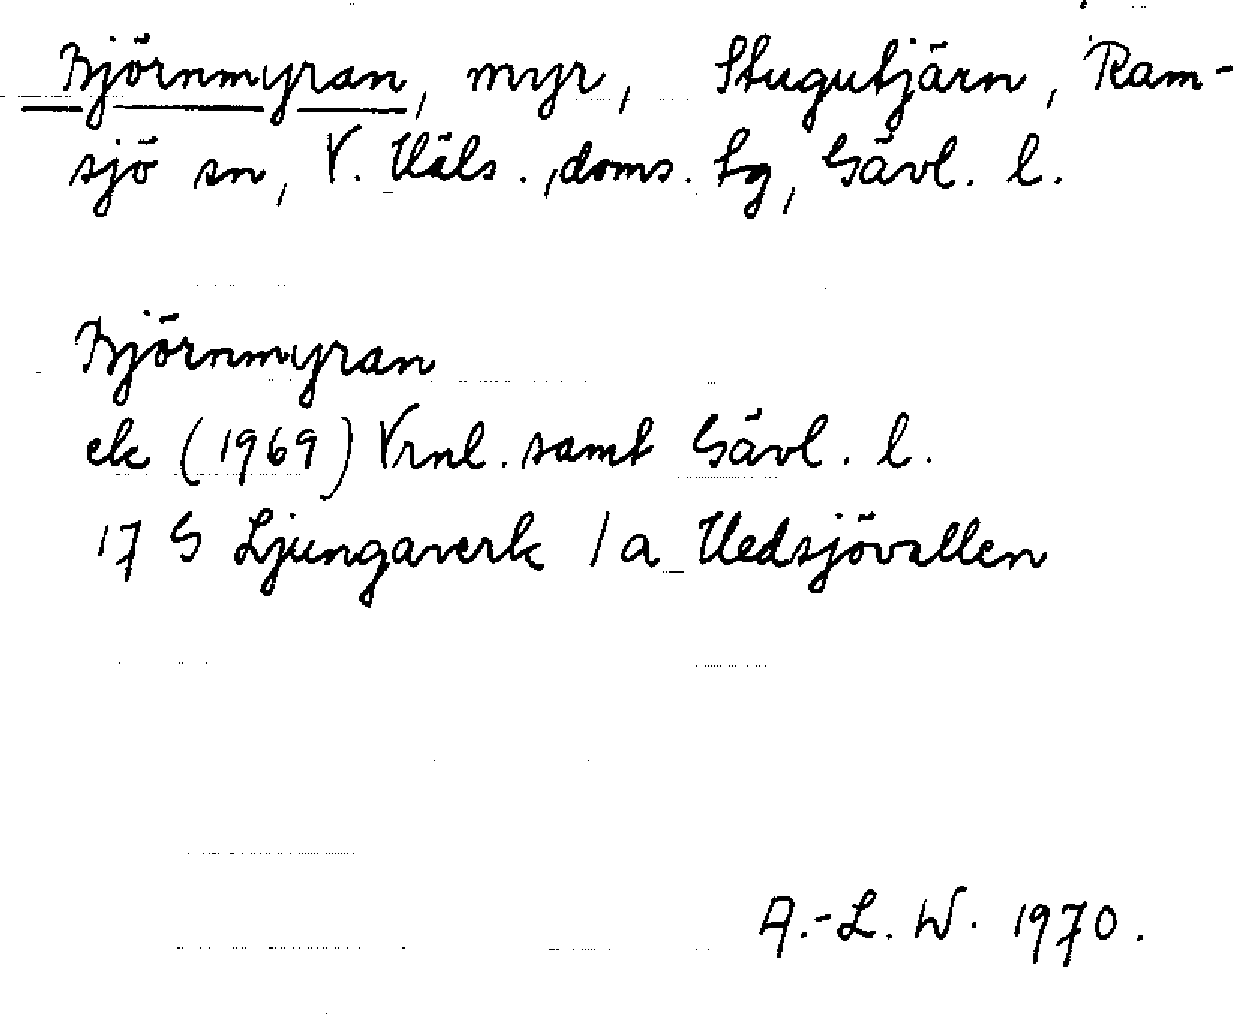 Björnmyran, myr, Stugutjärn, Ram-
sjö sn, V. Häls., doms. Lg, Gävl. l.
Björnmyran
ek (1969) Vrnl. samt Gävl. l.
17 G Ljungaverk 1 a Hedsjövallen
A.-L. W. 1970.